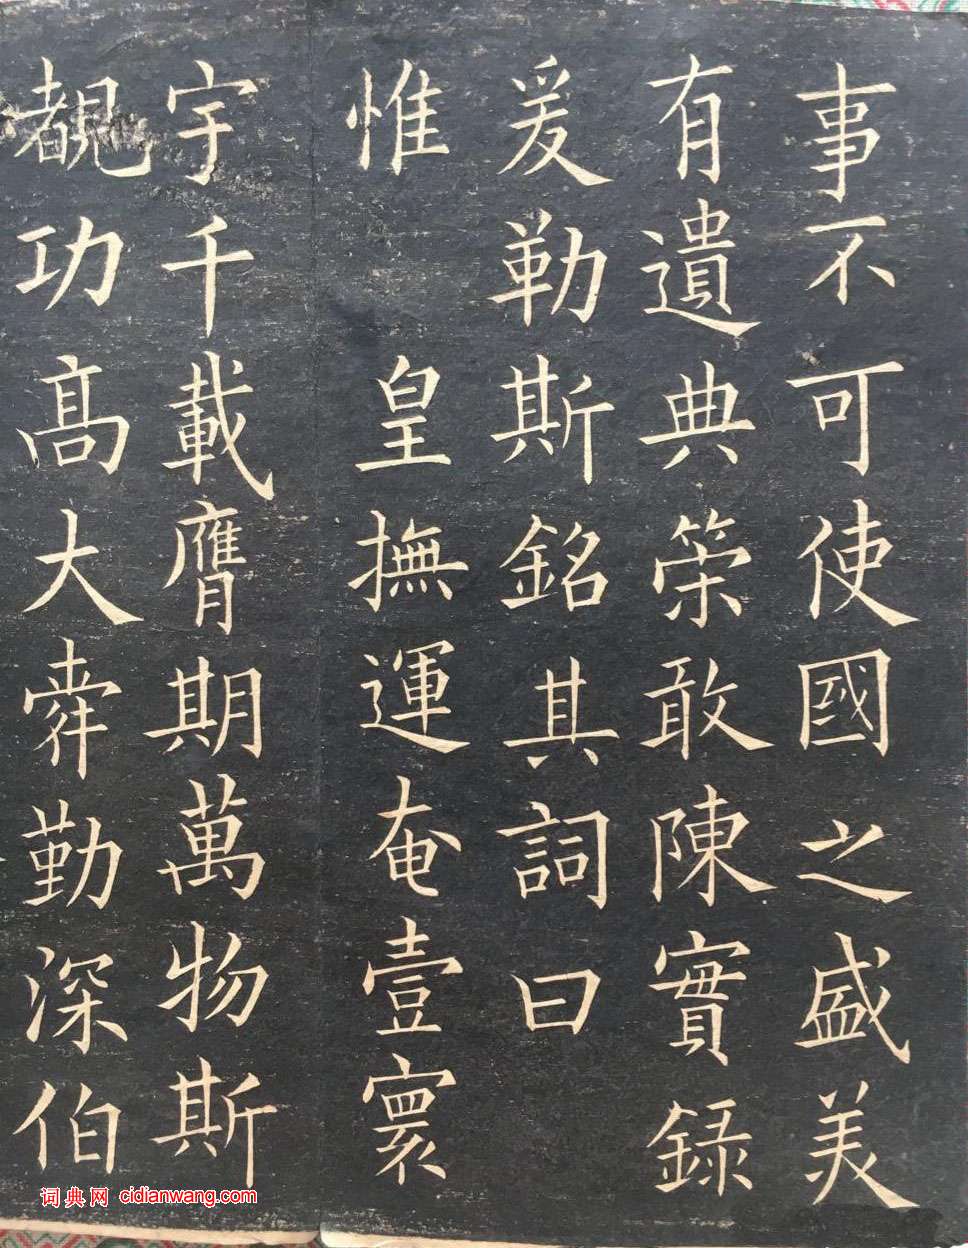 事不可使國之盛美
有遺典策敢陳實録
爰勒斯銘其詞曰
惟皇撫運奄壹寰
宇千載膺期萬物斯
覩功高大舜勤深伯
词典网 cidianwang.com